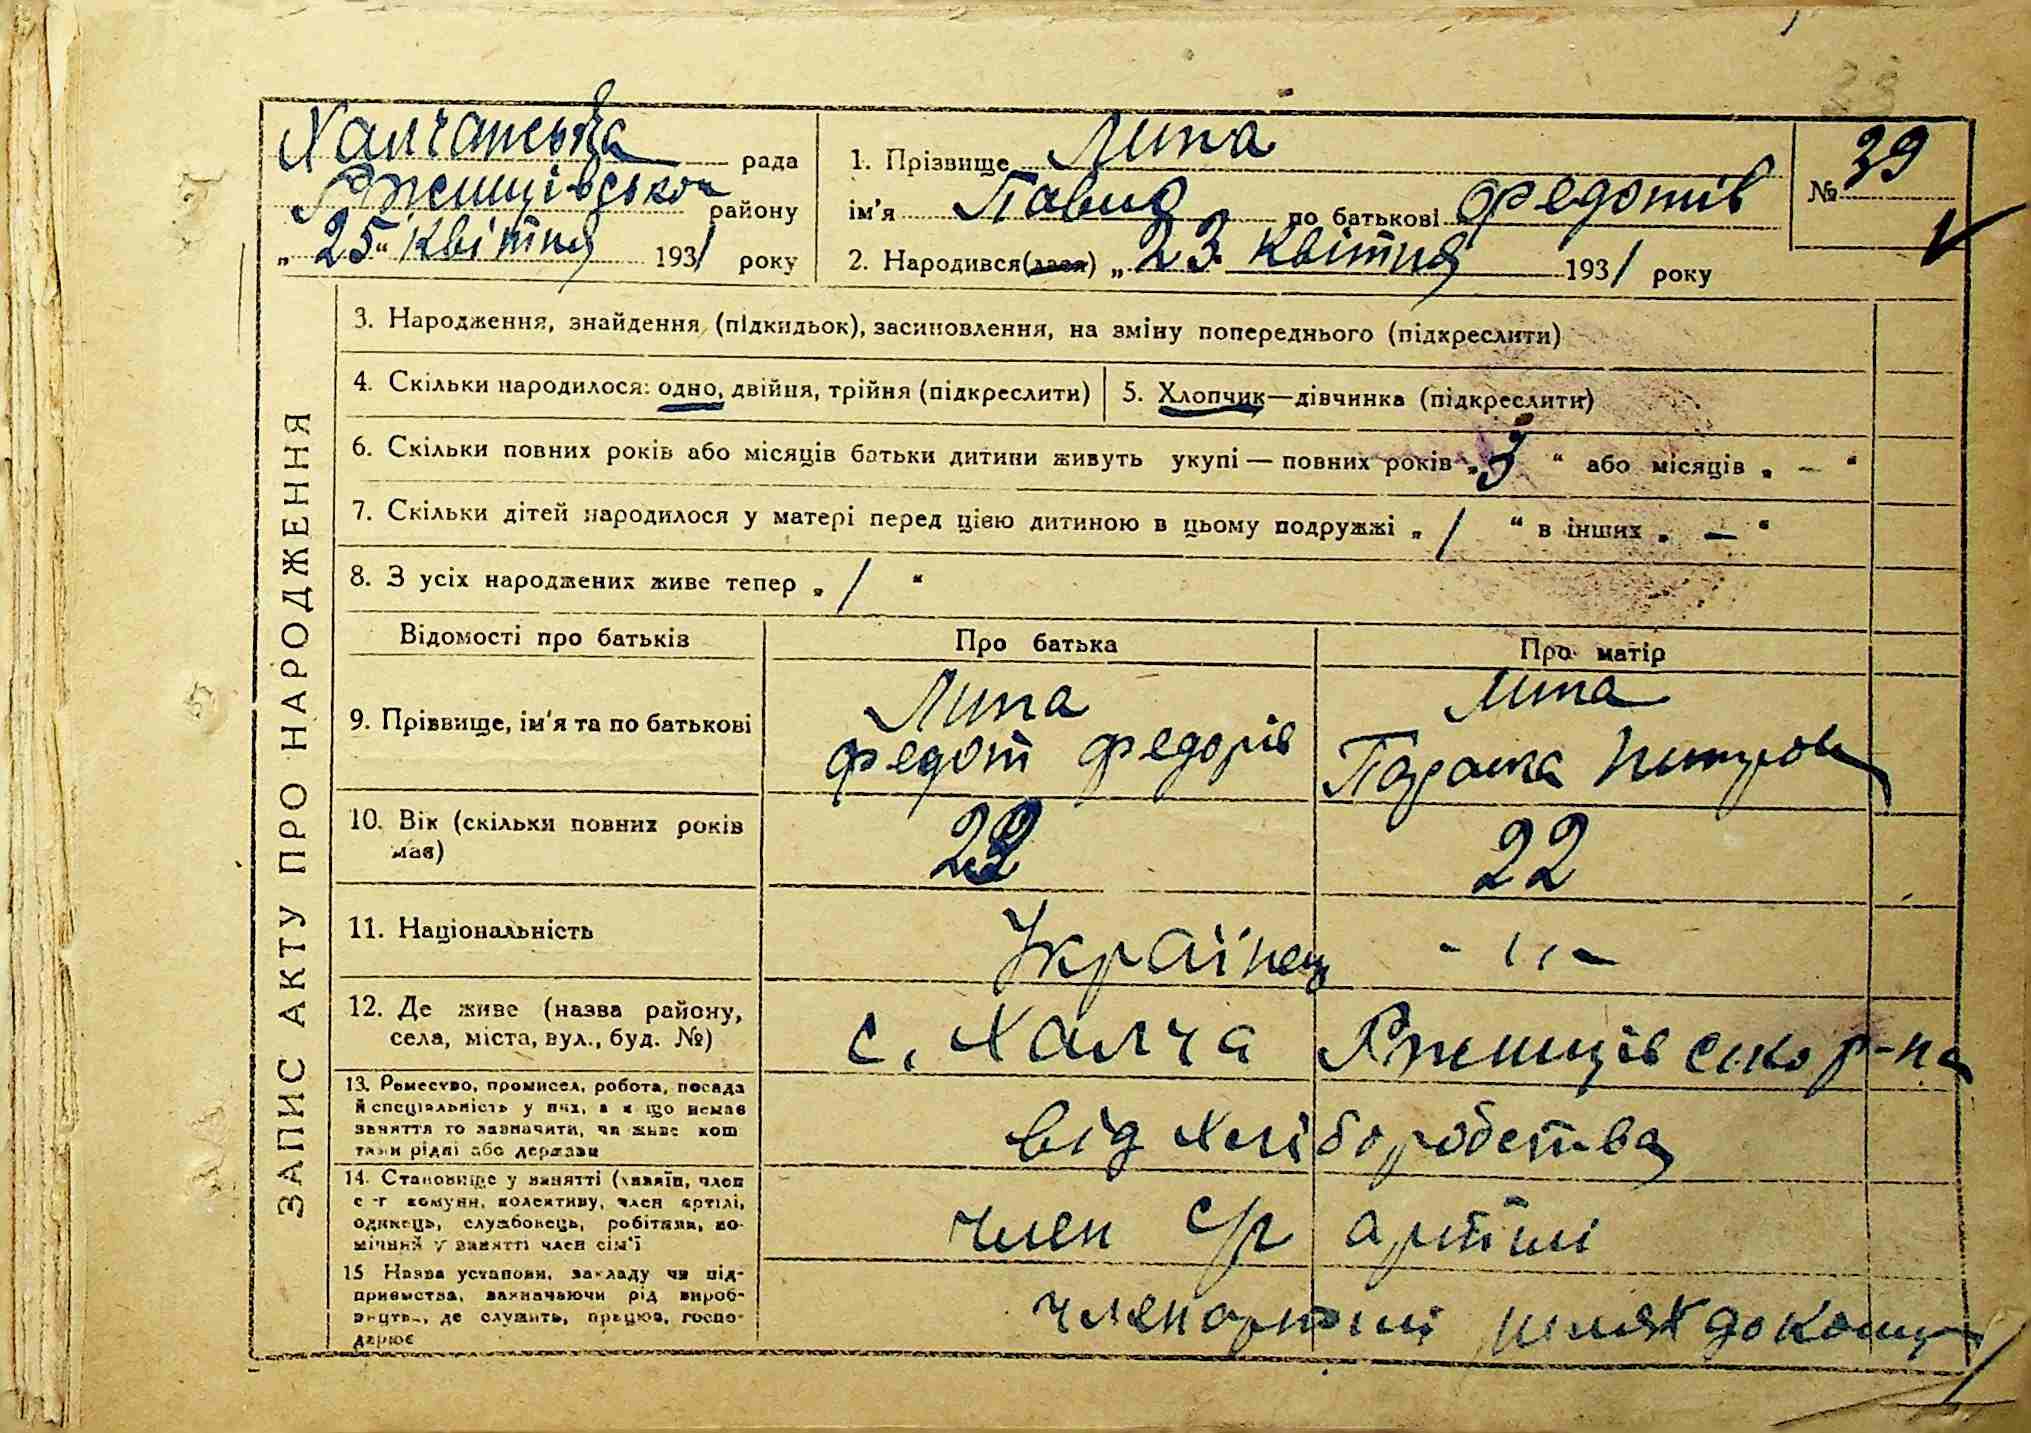 Халчанська рада
Ржищівського району
„25“ квітня 1931 року
1. Прізвище Липа
ім'я Павло по батькові Федотів
2. Народився(лася) „23 квітня 1931 року
№ 39
ЗАПИС АКТУ ПРО НАРОДЖЕННЯ
3. Народження, знайдення (підкидьок), засиновлення, на зміну попереднього (підкреслити)
4. Скільки народилося: одно, двійня, трійня (підкреслити)
5. Хлопчик—дівчинка (підкреслити)
6. Скільки повних років або місяців батьки дитини живуть укупі — повних років „3“ або місяців „—“
7. Скільки дітей народилося у матері перед цією дитиною в цьому подружжі „1“ в інших „—“
8. З усіх народжених живе тепер „1“
Відомості про батьків Про батька Про матір
9. Прізвище, ім'я та по батькові
Липа
Федот Федорів
Липа
Параска
10. Вік (скільки повних років
має)
22
11. Національність
Українець - ,, -
12. Де живе (назва району,
села, міста, вул., буд. №)
с. Халча Ржищівсько р-на
13. Ремество, промисел, робота, посада
й спеціальність у них, а якщо немає
заняття то зазначити, чи живе кош
тами рідні або держави
від хліборобства
14. Становище у занятті (хазяїн, член
с-г комуни, колективу, член артілі,
одинець, службовець, робітник, по-
мічний у занятті член сім'ї
член с/г артілі
15 Назва установи, закладу чи під-
приємства, зазначаючи рід вироб-
ництва, де служить, працює, госпо-
дарює
член артілі шлях до комун